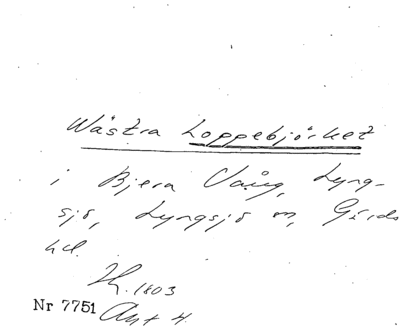 Wästra Loppebjörket
i Bjera Vång, Lyng-
sjö, Lyngsjö sn, Gärds
hd.
1803
Nr 7751 Akt 4.